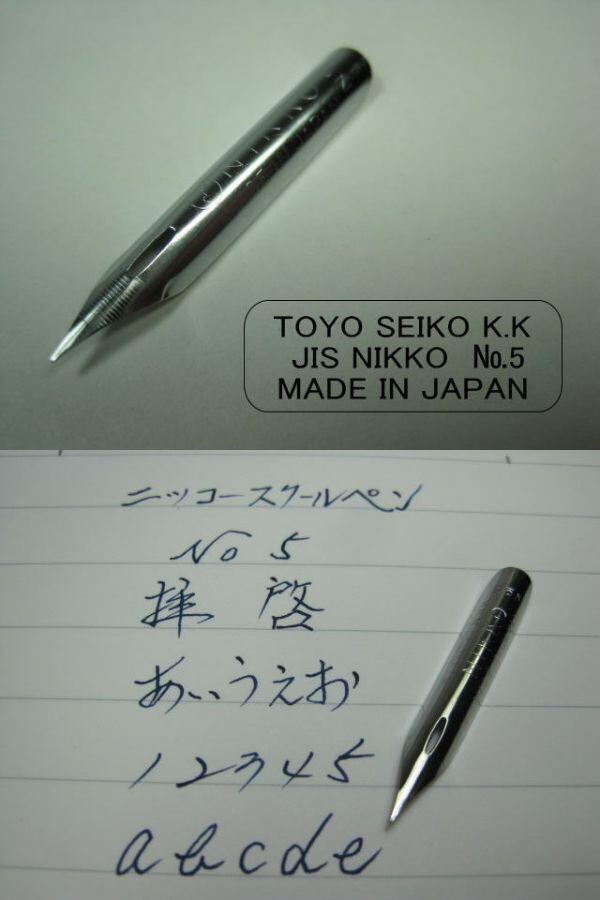 TOYO SEIKO K.K
JIS NIKKO №.5
MADE IN JAPAN
ニッコースクールペン
No 5
拝啓
あいうえお
12345
abcde